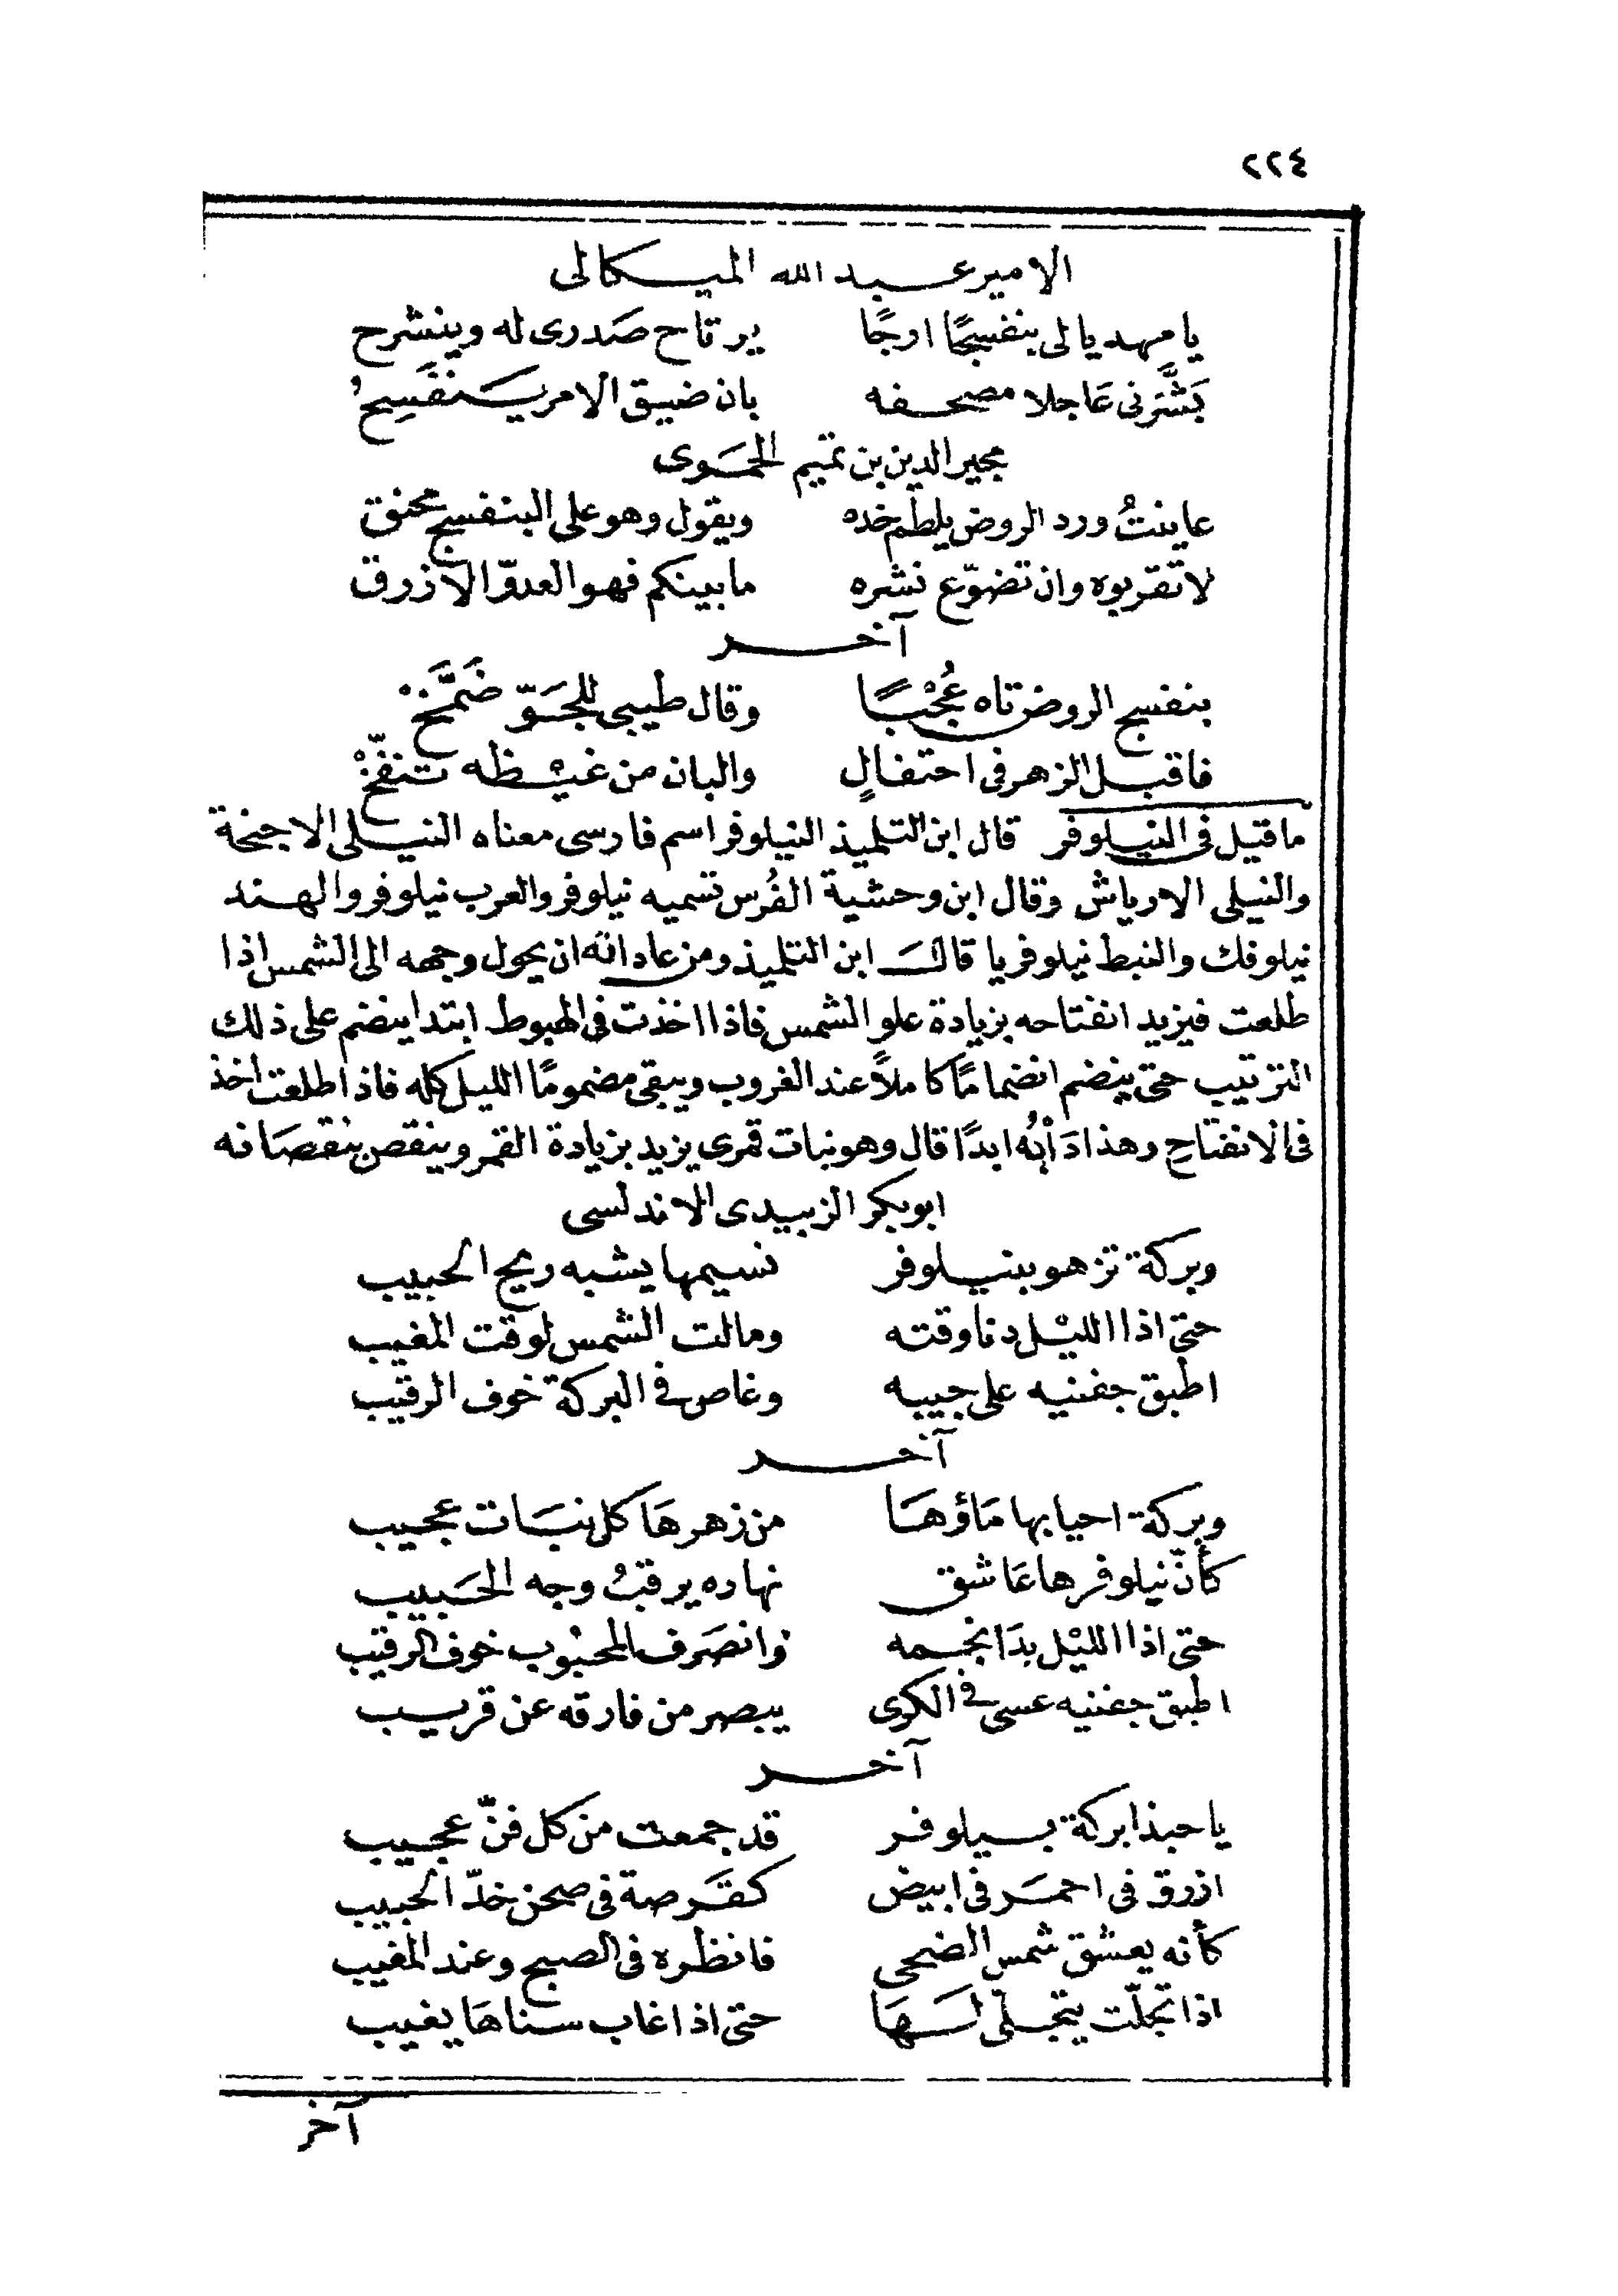 ٢٢٤
الامير عبد الله الميكالى
يا مهديا لى بنفسجًا ارجًا يرتاح صَدرى له وينشرح
بَشَّرنى عَاجلا مصحفه بان ضيق الامر ينفَسِحُ
مجير الدين بن تميم الحمَوى
عاينتُ ورد الروض يلطم خده ويقول وهو على البنفسج محنق
لا تقربوه وان تضوّع نشره ما بينكم فهو العدوّ الازرق
آخر
بنفسج الروض تاه عُجْبًا وقال طيبى للجَوّ ضَمَّخْ
فاقبل الزهر فى احتفالٍ والبان من غيْظه تنفّخْ
ما قيل فى النيلوفر قال ابن التلميذ النيلوفر اسم فارسى معناه النيلى الاجنحة
والنيلى الارياش وقال ابن وحشية الفُرس تسميه نيلوفر والعرب نيلوفر والهند
نيلوفك والنبط نيلوفريا قالَ ابن التلميذ ومن عاداته ان يحول وجهه الى الشمس اذا
طلعت فيزيد انفتاحه بزيادة علو الشمس فاذا اخذت فى الهبوط ابتدا ينضم على ذلك
الترتيب حتى ينضم انضمامًا كاملاً عند الغروب ويبقى مضمومًا الليل كله فاذا طلعت اخذ
فى الانفتاحِ وهذا دَأبُه ابدًا قال وهو نبات قمرى يزيد بزيادة القمر وينقص بنقصَانه
ابو بكر الزبيدى الاندلسى
وبركة تزهو بنيلوفر نسيمها يشبه ريح الحبيب
حتى اذا الليْل دنا وقته ومالت الشمس لوقت المغيب
اطبق جفنيه على جيبه وغاص فى البركة خوف الرقيب
آخر
وبركة احيا بها مَاؤهَا من زهرهَا كل نبَات عجيب
كأنّ نيلوفرها عَاشق نهاره يرقبُ وجه الحَبيب
حتى اذا الليْل بدَا نجمه وانصَرف المحبْوب خوف الرقيب
اطبق جفنيه عسى فى الكرى يبصر من فارقه عن قريب
آخر
يا حبذا بركة نيلوفر قد جمعت من كل فنّ عجيب
ازرق فى احمَر فى ابيض كقَرصة فى صحن خدّ الحبيب
كأنه يعشق شمس الضحى فانظره فى الصبح وعند المغيب
اذا تجلّت يتجلّى لهَا حتى اذا غاب سناهَا يغيب
آخر